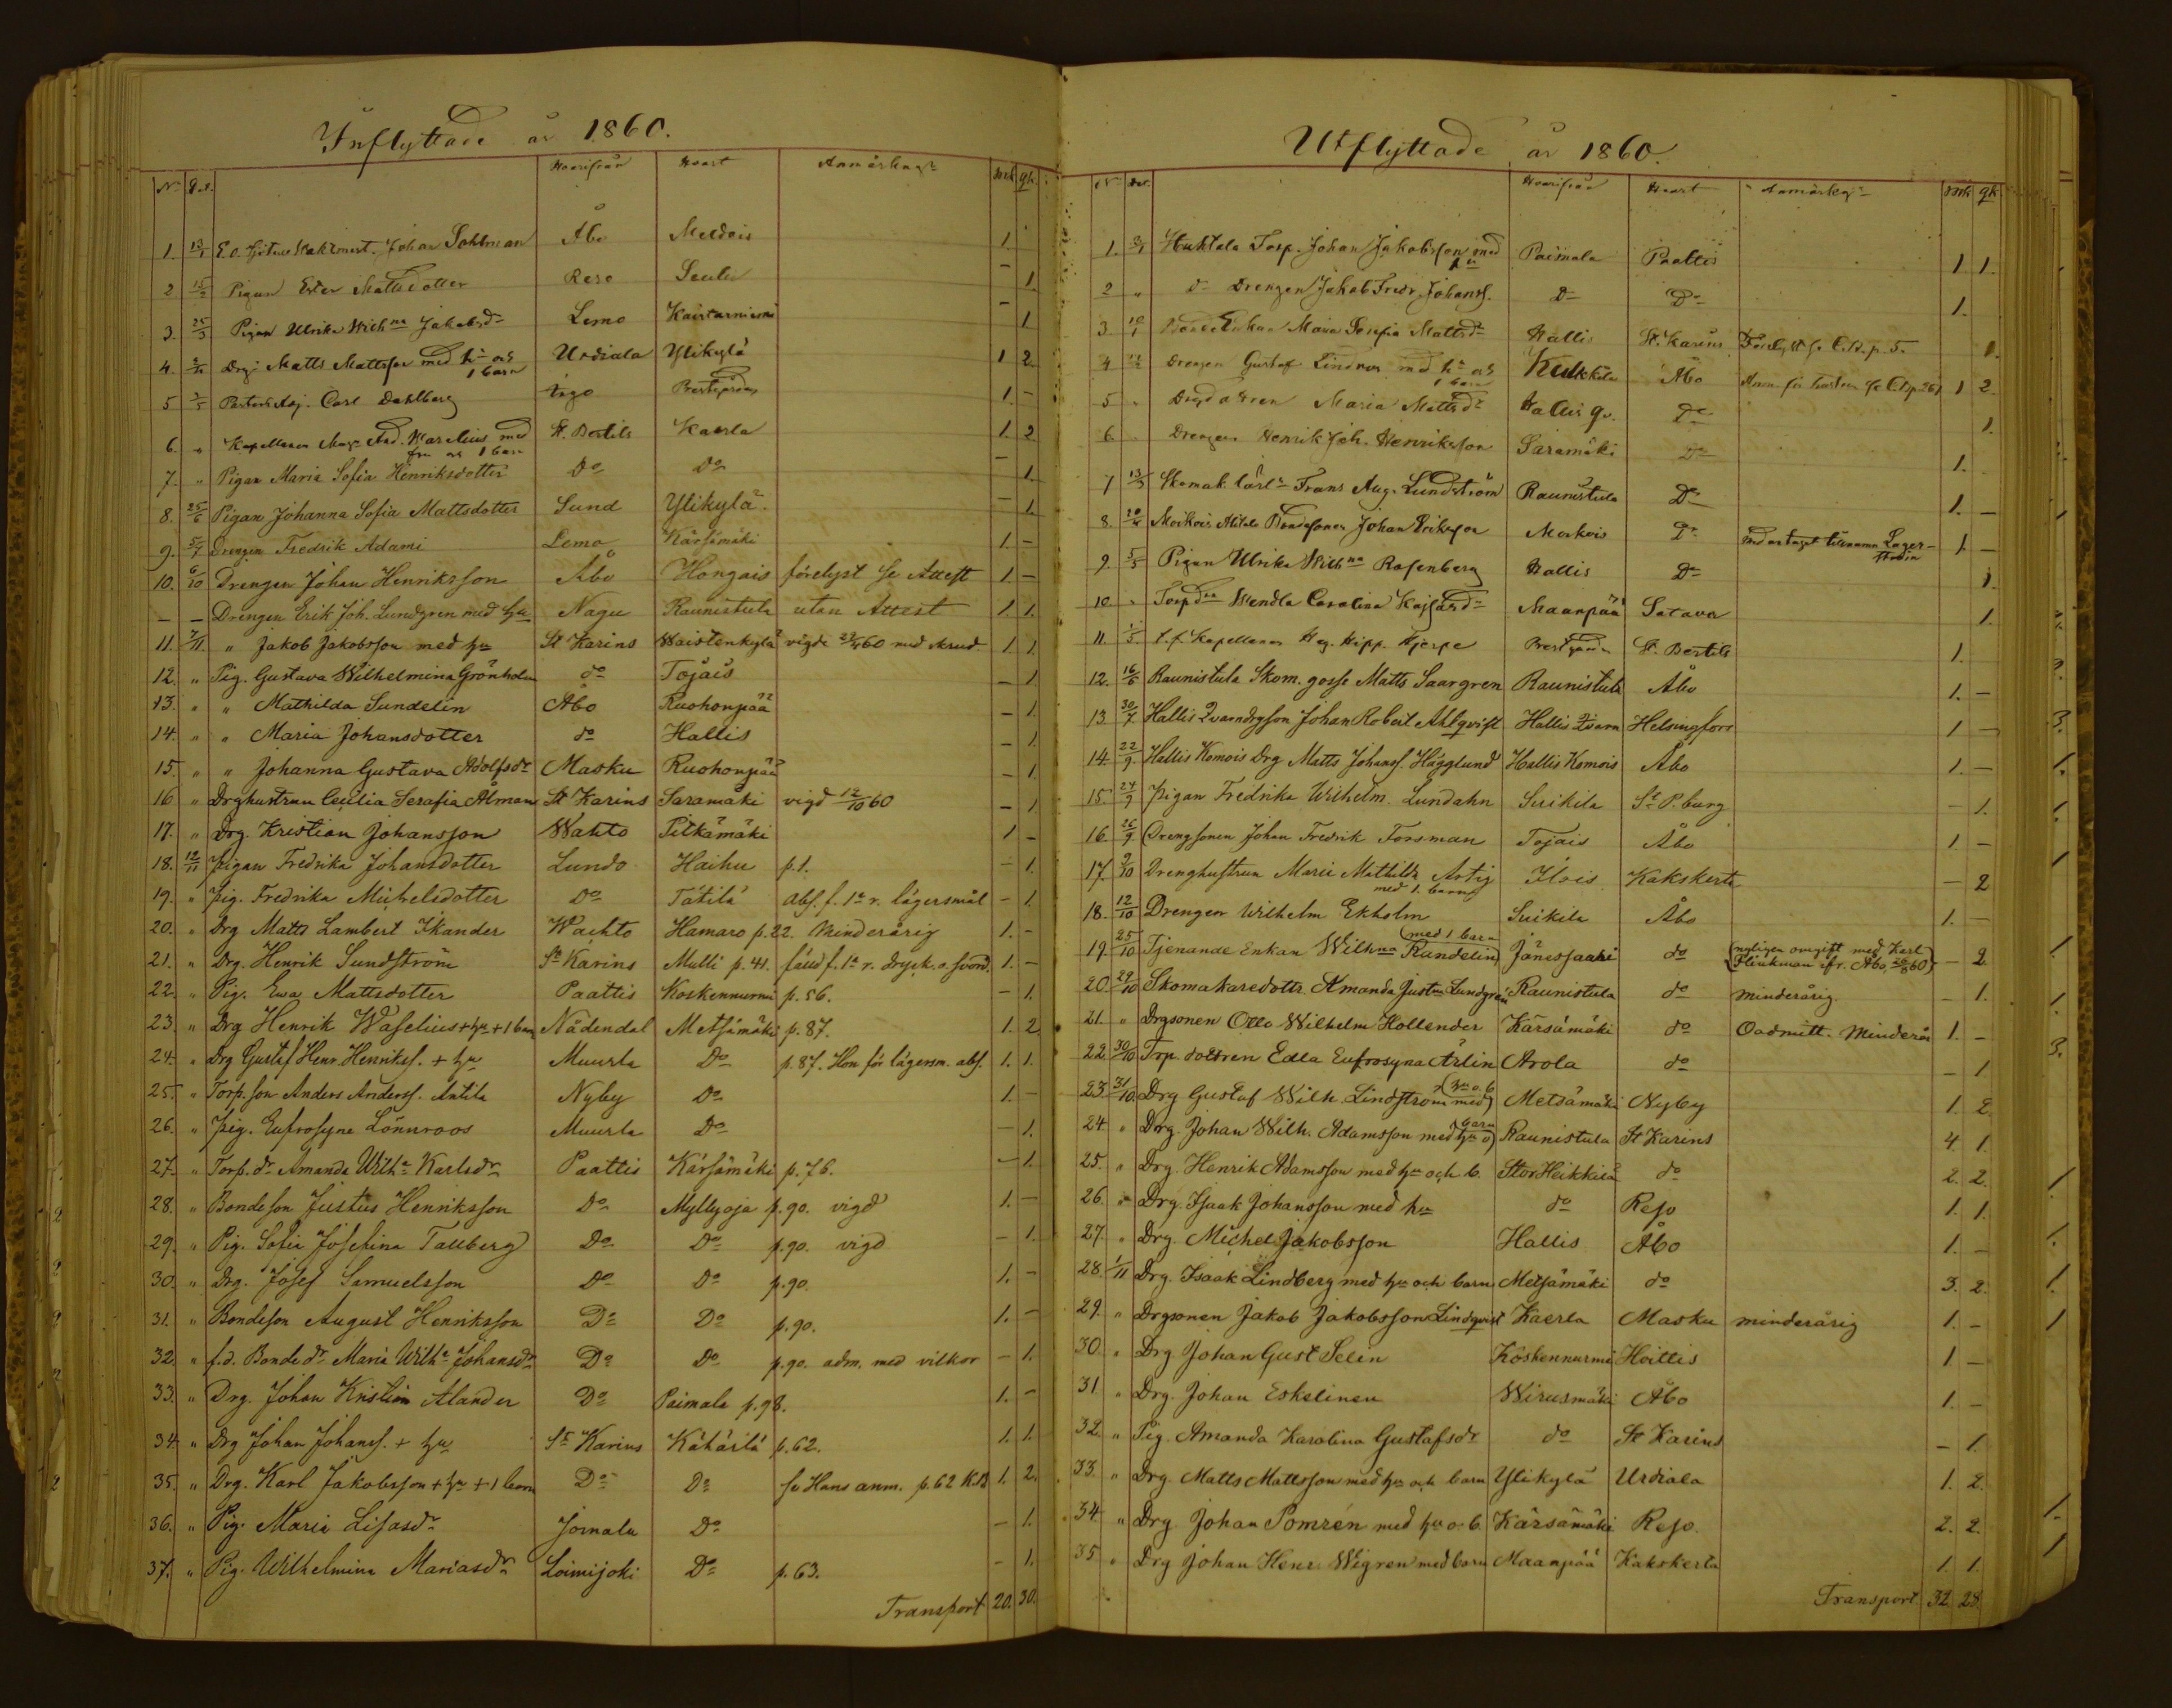 Inflyttade år 1860.
No Dat. Hvarifrån Hvart Anmärkngr Mk qk.
1. 13/1 E.O. Johan Sahlman Åbo Meldois 1.
2 15/2 Pigan Ester Mattsdotter Reso Saulu – 1
3. 25/3 Pigan Ulrika Wilhna Jakobsdr Lemo Kairtarniemi – 1
4. Drg. Matts Mattsson med hu och 1 barn Urdiala Ylikylä 1 2
5 3/5 Pastors Adj. Carl Dahlberg Prestgården 1. –
6. " Kapellanen Mag. And. Warelius med fru och 1 barn St. Bertils Kaerla 1. 2
7. " Pigan Maria Sofia Henriksdotter Do Do – 1.
8. 25/6 Pigan Johanna Sofia Mattsdotter Sund Ylikylä. – 1.
9. 5/7 Drengen Fredrik Adami Lemo Kärsämäki 1. –
10. 6/10 Drengen Johan Henriksson Åbo Hongais förelyst se Attest 1 –
– – Drengen Erik Joh. Lundgren med hu Nagu Raunistula utan Attest 1 1.
11. 7/11 " Jakob Jakobsson med hu St Karins Waistenkylä vigde 60 med 1. 1.
12. " Pig. Gustava Wilhelmina Grönholm do Tojais – 1
13. " " Mathilda Sundelin Åbo Ruohonpää – 1.
14. " " Maria Johansdotter do Hallis – 1.
15. " " Johanna Gustava Adolfsdr Masku Ruohonpää – 1.
16 " Drghustrun Cecilia Serafia Ålman St Karins Saramäki vigd 12/10 60 – 1
17. " Drg. Kristian Johansson Wahto Pitkämäki 1 –
18. 12/11 Pigan Fredrika Johansdotter Lundo Haihu p.1. – 1.
19. " Pig. Fredrika Michelsdotter Do Tätilä abs. f. 1a r. lägersmål – 1.
20. " Drg Matts Lambert Ikander Wachto Hamaro p.22. Minderårig 1. –
21. " Drg. Henrik Sundström St Karins Mulli p.41. fälld f. 1a r. dryck. o. svord. 1. –
22. " Pig. Ewa Mattsdotter Paattis Koskennurmi p.56. – 1.
23. " Drg Henrik Waselius + hu + 1 barn Nådendal Metsämäki p.87. 1. 2
24. " Drg Gustaf Henr. Henrikss. + hu Muurla Do p.87. Hon för lägersm. abs. 1. 1.
25. " Torp. son Anders Anderss. Antila Nyby Do 1. –
26. " Pig. Eufrosyne Lönnroos Muurla Do – 1.
27. " Torp. dr Amanda Wilha Karlsdr Paattis Kärsämäki p.76. – 1.
28. " Bondeson Justus Henriksson Do Myllyoja p.90. vigd 1. –
29. " Pig. Sofia Josefina Tallberg Do Do p.90. vigd – 1.
30. " Drg. Josef Samuelsson Do Do p.90. 1. –
31. " Bondeson August Henriksson Do Do p.90. 1. –
32. " f.d. Bonde dr Maria Wilha Johansdr Do Do p.90. adm. med vilkor – 1.
33. " Drg. Johan Kristian Alander Do Paimala p.98. 1. –
34 " Drg Johan Johanss. + hu St Karins Kähärlä p.62. 1. 1.
35. " Drg. Karl Jakobsson + hu + 1 barn Do Do se Hans anm. p.62 K.B 1. 2.
36. " Pig. Maria Lisasdr Jomala Do – 1.
37. " Pig. Wilhelmina Mariasdr Loimijoki Do p.63. – 1.
Transport 20. 30.
Utflyttade år 1860.
No Dat. Hvarifrån Hvart Anmärkngr Mk qk
1. Huktala Torp. Johan Jakobsson med hu Paimala Paattis 1 1.
2 " do Drengen Jakob Fredr Johanss. Do Do 1.
3. 10/1 Maria Serafia Mattsdr Hallis St. Karins p. 5. 1.
4 Drengen Gustaf Lindroos med hu och 1 barn Kulkkila Åbo 1 2.
5 " Maria Mattsdr Hallis qv. Do 1.
6. " Drengen Henrik Joh. Henriksson Saramäki Do 1.
7 13/3 Skomak. lärl. Frans Aug. Lundström Raunistula Do 1. –
8. Moikois Bondesonen Johan Eriksson Moikois Do med antaget tillnamn Lagerstedin 1. –
9. 5/5 Pigan Ulrika Wilhna Rosenberg Hallis Do 1.
10. " Torp dr Wendla Carolina Kajsasdr Maanpää Satava 1.
11. t.f. Kapellanen Hjerpe Prestgården St. Bertils 1.
12. 16/6 Raunistula Skom. gosse Matts Saargren Raunistula Åbo 1. –
13 30/7 Hallis Qvarndrgson Johan Robert Ahlqvist Hallis Qvarn Helsingfors 1 –
14. 22/9 Hallis Komois Drg Matts Johanss. Hägglund Hallis Komois Åbo 1. –
15. 24/9 Pigan Fredrika Wilhelm. Lundahn Suikila St P.burg – 1.
16. 26/9 Drengsonen Johan Fredrik Forsman Tojais Åbo 1 –
17. 9/10 Drenghustrun Marie Mathilda Artig med 1. barn Ilois Kakskerta – 2
18. 12/10 Drengen Wilhelm Ekholm Suikila Åbo 1. –
19. 25/10 Tjenande Enkan Wilhna Randelin (med 1 barn) Jänessaari do (nyligen omgift med Karl Flinkman ifr. Åbo 60) – 2.
20. 29/10 Skomakaredottr. Amanda Justna Lundgren Raunistula do minderårig. – 1.
21. " Drgsonen Otto Wilhelm Hollender Kärsämäki do Oadmitt. Minderår. 1. –
22. 30/10 Trp. dottren Edla Eufrosyna Ärlin Arola do – 1
23. 31/10 Drg Gustaf Wilh. Lindström med (hu o. b. Metsämäki Nyby 1. 2.
24 " Drg. Johan Wilh. Adamsson med hu o barn Raunistula St Karins 4. 1.
25. " Drg. Henrik Adamsson med hu och b. Stor Heikkilä do 2. 2.
26. " Drg. Isaak Johansson med hu do Reso 1. 1.
27. " Drg. Michel Jakobsson Hallis Åbo 1. –
28. 1/11 Drg. Isaak Lindberg med hu och barn Metsämäki do 3. 2.
29. " Drgsonen Jakob Jakobsson Lindqvist Kaerla Masku minderårig 1. –
30. " Drg Johan Gust Selin Koskennurmi Hoittis 1 –
31. " Drg. Johan Eskelinen Wirusmäki Åbo 1. –
32. " Pig. Amanda Karolina Gustafsdr do St Karins – 1.
33. " Drg. Matts Mattsson med hu och barn Ylikylä Urdiala 1. 2.
34. " Drg. Johan Pomrén med hu o. b. Kärsämäki Reso. 2. 2.
35 " Drg Johan Henr. Wigren med barn Maanpää Kakskerta 1. 1.
Transport. 32. 28.